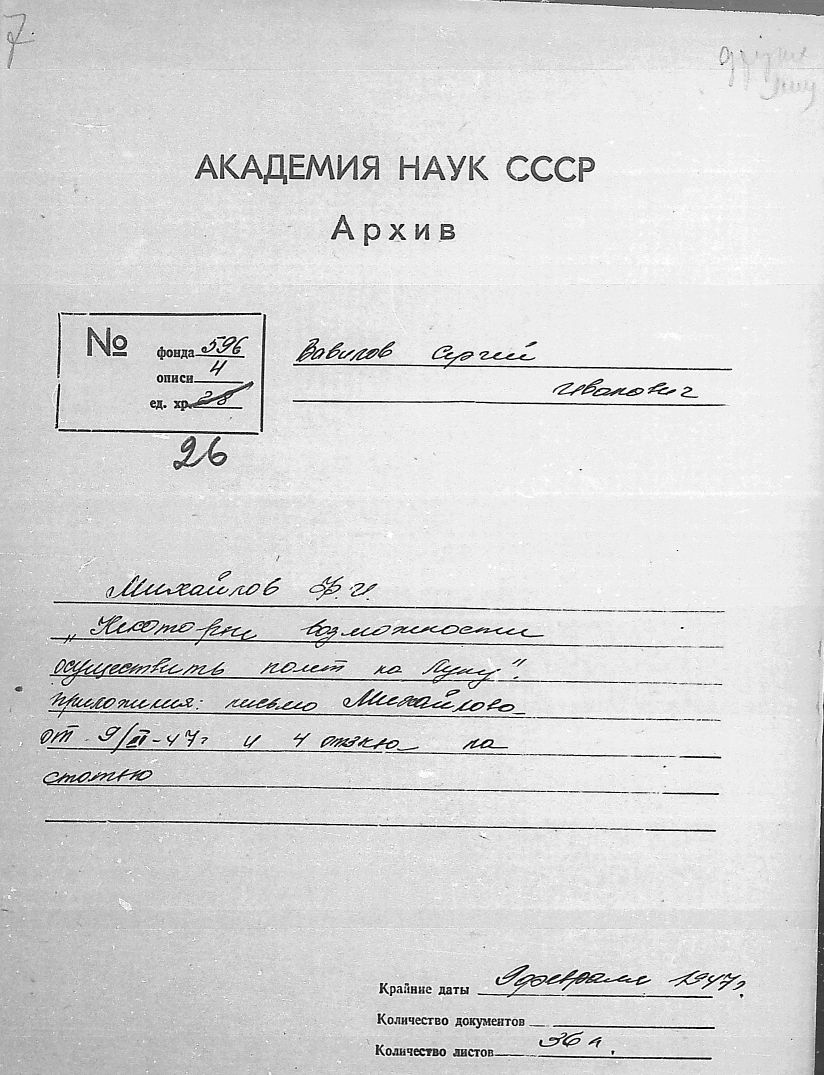 7.
другие
АКАДЕМИЯ НАУК СССР
Архив
№
фонда 596
описи 4
ед. хр. 28
26
Вавилов Сергей
Иванович
Михайлов Ф.И.
„Некоторые возможности
осуществить полет на Луну".
приложения: письмо Михайлова
от 9/II-47г и 4 отзыва на
статью
Крайние даты 9 февраля 1947г.
Количество документов
Количество листов 36 л.